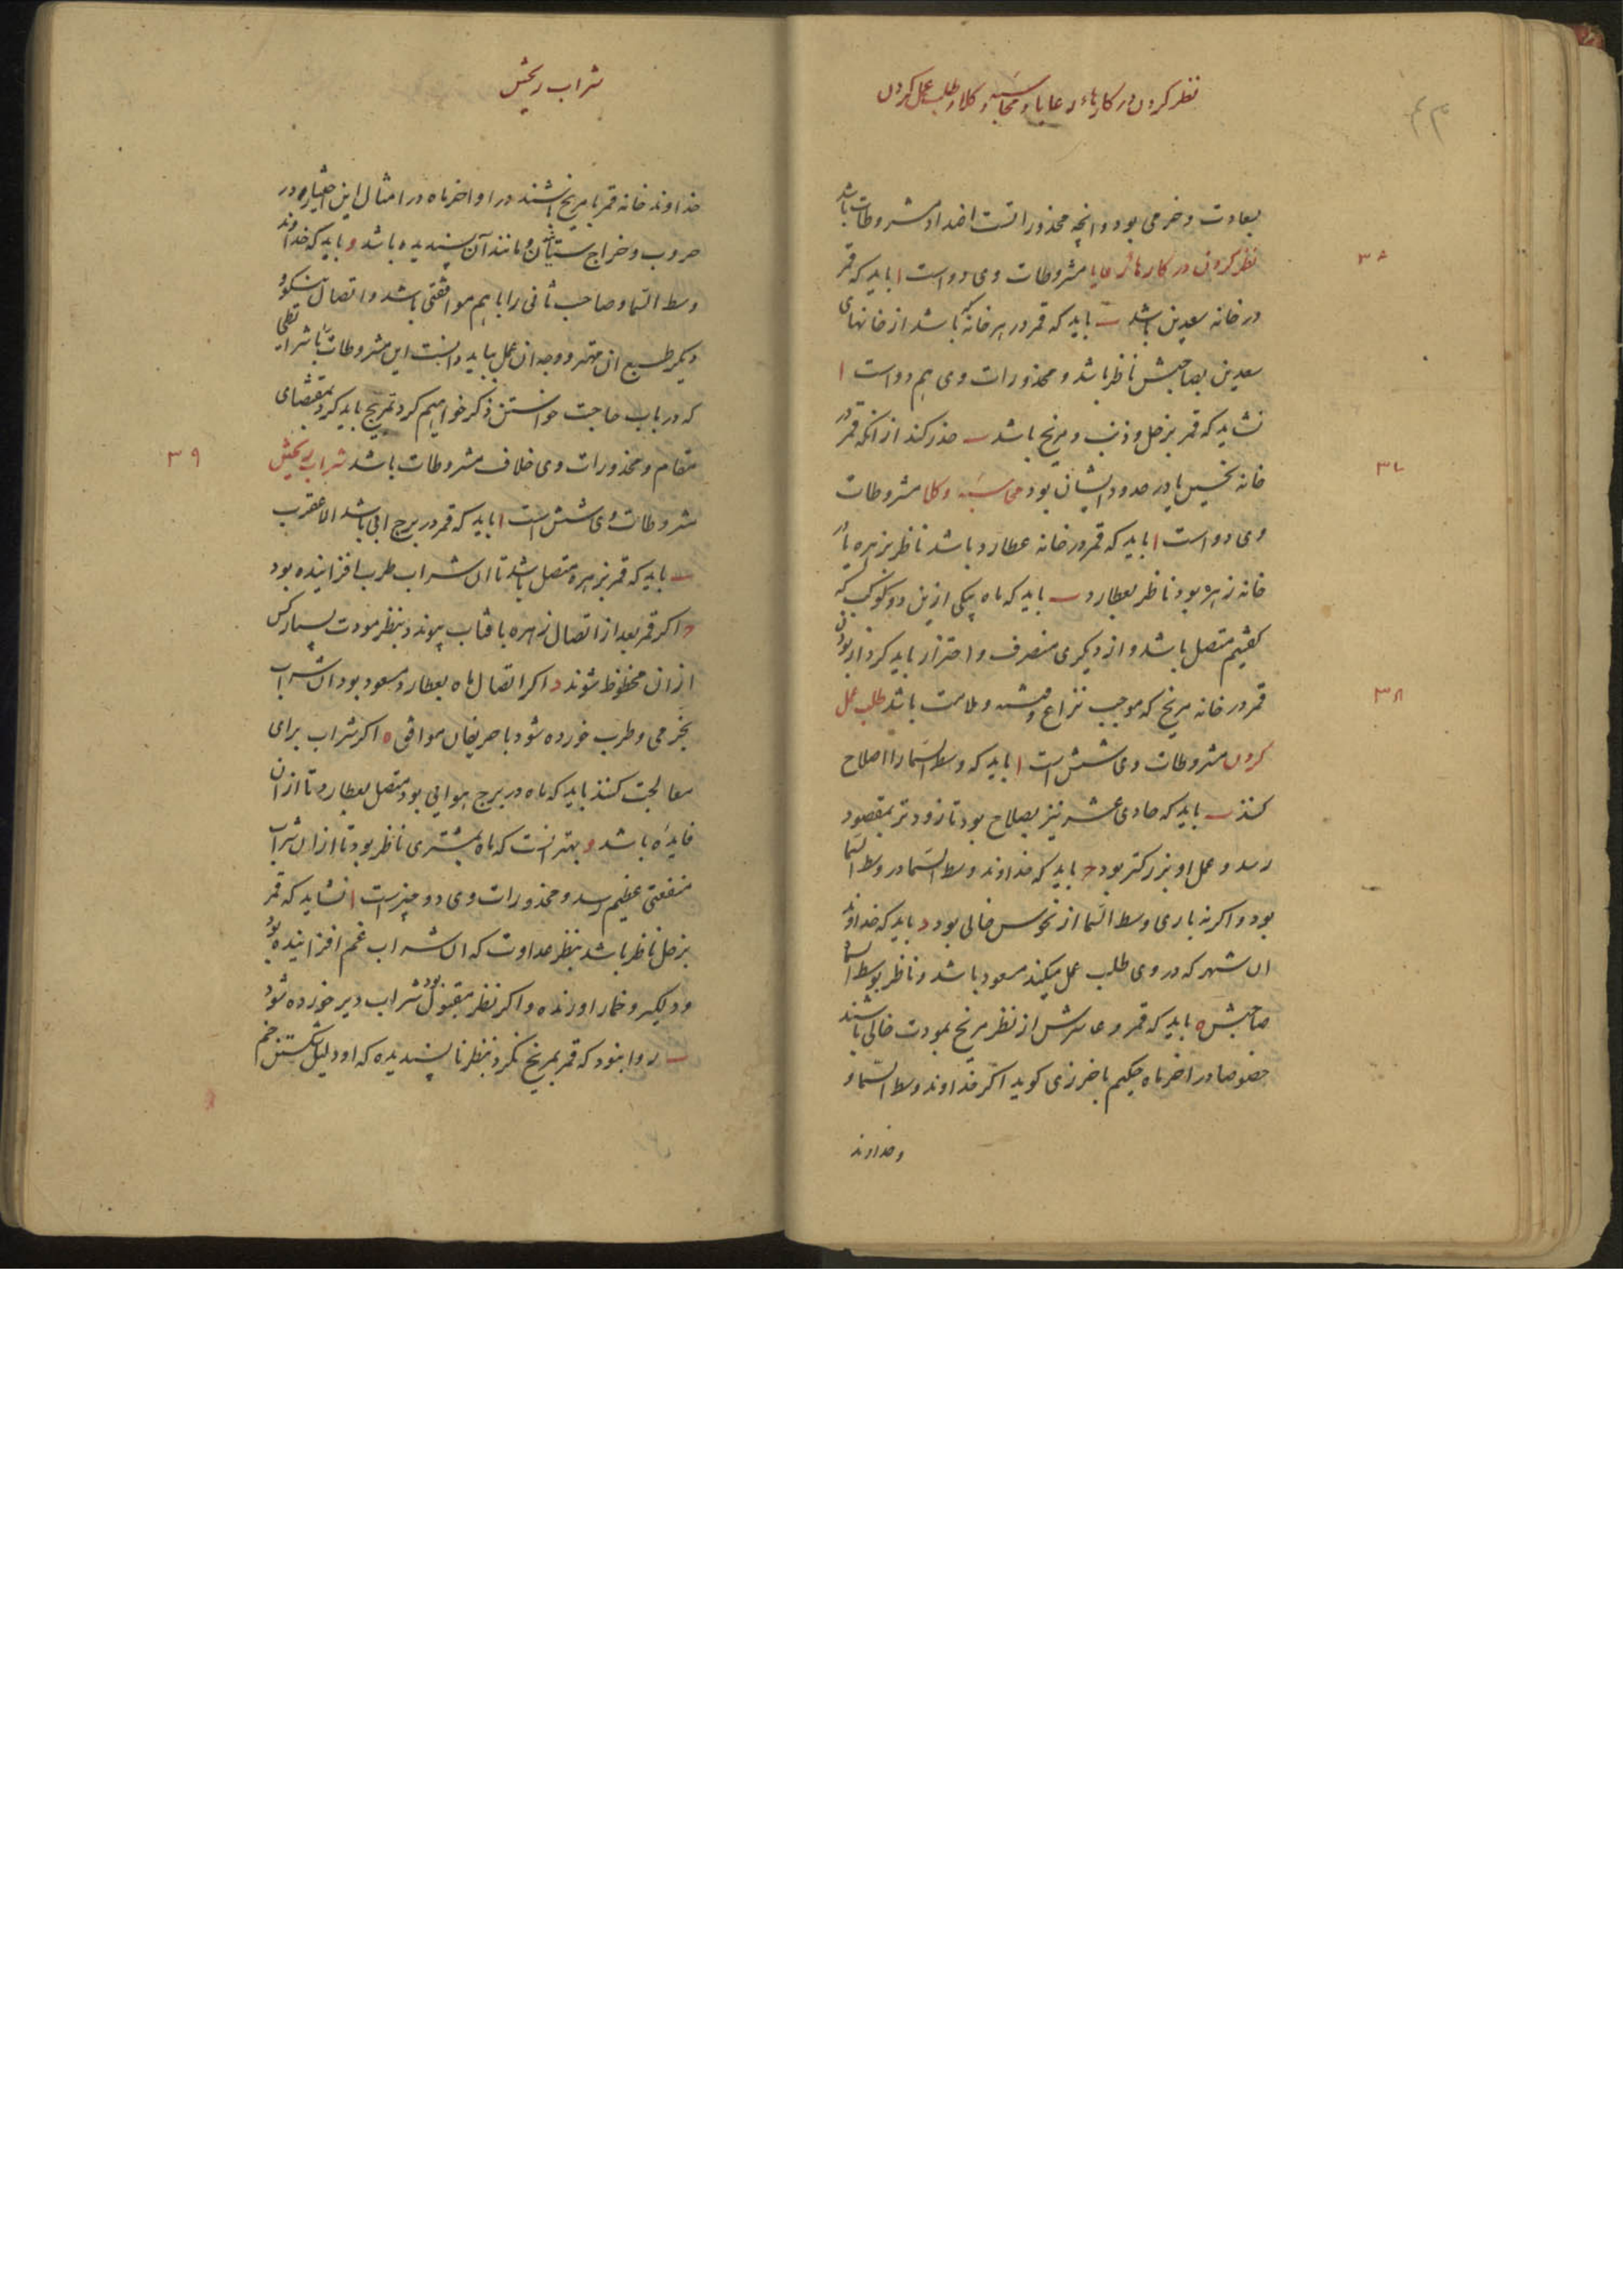 نظر کردن در کارهاء رعایا و محاسبه وکلا و طلب عمل کردن
بعادت و خرمی بود و انچه محذور انست اضداد مشروطات باشد
۳۶
نظر کردن در کارهاء رعایا مشروطات وی دو است ا باید که قمر
در خانه سعدین باشد ب باید که قمر در هر خانه که باشد از خانهای
سعدین بصاحبش ناظر باشد و محذورات وی هم دو است ا
نشاید که قمر بزحل و ذنب و مریخ باشد ب حذر کند از انکه قمر در
۳۷
خانه نحسین یا در حدود ایشان بود محاسبه وکلا مشروطات
وی دو است ا باید که قمر در خانه عطارد باشد ناظر بزهره یا در
خانه زهره بود ناظر بعطارد ب باید که ماه بیکی ازین دو کوکب که
کفتیم متصل باشد و از دیکری منصرف و احتراز باید کرد از بودن
۳۸
قمر در خانه مریخ که موجب نزاع و فتنه و ملامت باشد طلب عمل
کردن مشروطات وی شش است ا باید که وسط السما را اصلاح
کنند ب باید که حادی عشر نیز بصلاح بود تا زودتر بمقصود
رسد و عمل او بزرکتر بود ج باید که خداوند وسط السما در وسط السما
بود و اکر نه باری وسط السما از نحوس خالی بود د باید که خداوند
ان شهر که در وی طلب عمل میکند مسعود باشد و ناظر بوسط السما و
صاحبش ه باید که قمر و عاشرش از نظر مریخ بمودت خالی باشند
خصوصا در اخر ماه حکیم باخرزی کوید اکر خداوند وسط السما و
و خداوند
شراب ریختن
خداوند خانه قمر با مریخ باشند در اواخر ماه در امثال این اختیار در
حروب و خراج ستاندن و مانند آن پسندیده باشد و باید که خداوند
وسط السما و صاحب ثانی را با هم موافقتی باشد و اتصال نیکو و
دیکر طبع ان مهتر و وجه ان عمل بباید دانست این مشروطات با شرایطی
که در باب حاجت خواستن ذکر خواهیم کرد تمزیج باید کرد بمقتضای
۳۹
مقام و محذورات وی خلاف مشروطات باشد شراب ریختن
مشروطات وی شش است ا باید که قمر در برج ابی باشد الا عقرب
ب باید که قمر بزهره متصل باشد تا ان شراب طرب افزاینده بود
ج اکر قمر بعد از اتصال زهره بافتاب پیوندد بنظر مودت بسیار کس
از ان محظوظ شوند د اکر اتصال ماه بعطارد مسعود بود ان شراب
بخرمی و طرب خورده شود با حریفان موافق ه اکر شراب برای
معالجت کنند باید که ماه در برج هوایی بود متصل بعطارد تا از ان
فایده باشد و بهتر انست که ماه بمشتری ناظر بود تا از ان شراب
منفعتی عظیم رسد و محذورات وی دو چیز است ا نشاید که قمر
بزحل ناظر باشد بنظر عداوت که ان شراب غم افزاینده بود
و دلکیر و خمار اورنده و اکر نظر مقبول بود شراب دیر خورده شود
ب روا نبود که قمر بمریخ نکرد بنظر ناپسندیده که او دلیل شکستن خم